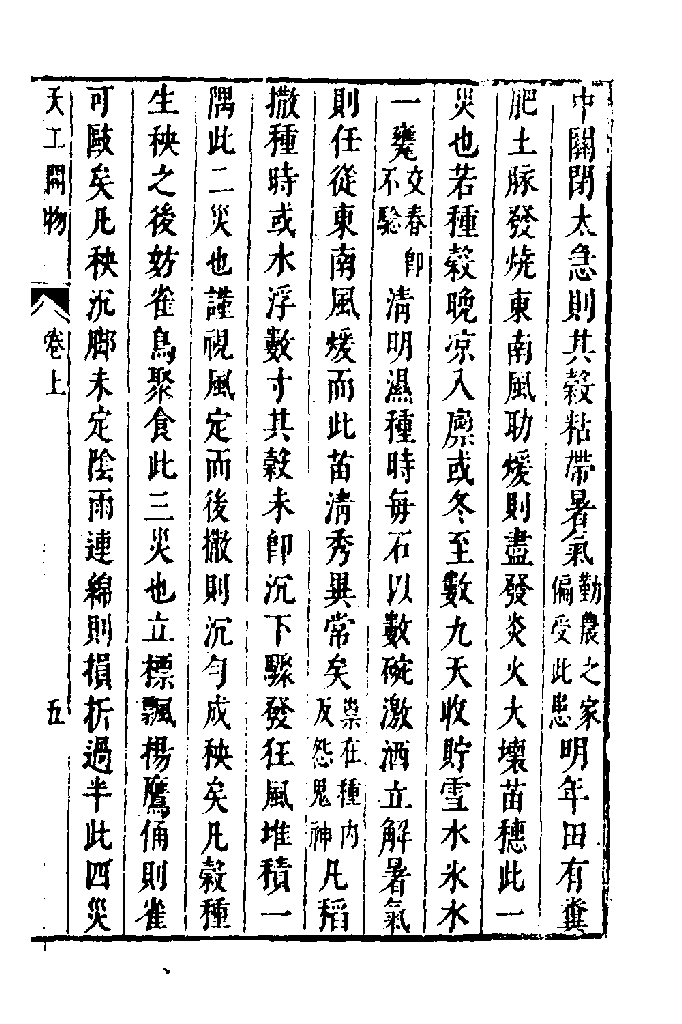 中關閉太急則其穀粘帶暑氣勤農之家偏受此患明年田有糞
肥土脉發燒東南風助煖則盡發炎火大壞苗穗此一
災也若種穀晚凉入廩或冬至數九天收貯雪水氷水
一甕交春卽不驗清明濕種時每石以數碗激洒立解暑氣
則任從東南風煖而此苗清秀異常矣祟在種內反怨鬼神凡稻
撒種時或水浮數寸其穀未卽沉下驟發狂風堆積一
隅此二災也謹視風定而後撒則沉勻成秧矣凡穀種
生秧之後妨雀鳥聚食此三災也立標飄楊鷹俑則雀
可敺矣凡秧沉脚未定陰雨連綿則損折過半此四災
天工開物 卷上 五